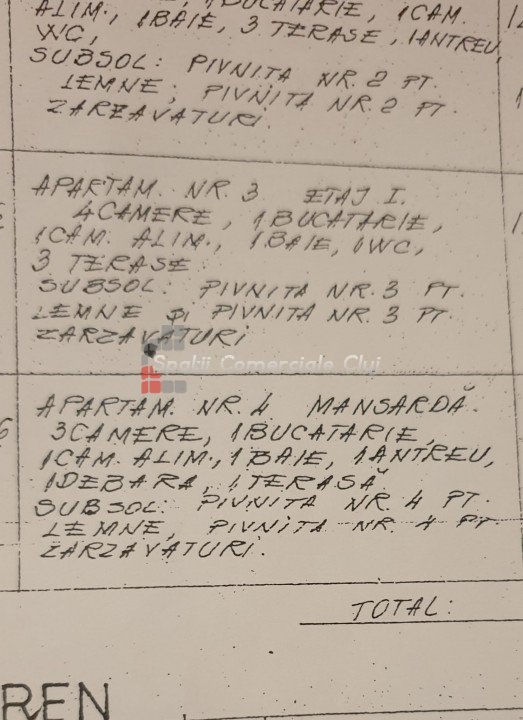 1BUCATARIE, 1CAM.
ALIM., 1BAIE, 3 TERASE, 1ANTREU,
WC,
SUBSOL: PIVNITA NR. 2 PT.
LEMNE; PIVNITA NR. 2 PT.
ZARZAVATURI.
APARTAM. NR. 3 ETAJ I.
4CAMERE, 1BUCATARIE,
1CAM. ALIM., 1BAIE, 1WC,
3 TERASE.
SUBSOL: PIVNITA NR. 3 PT.
LEMNE și PIVNITA NR. 3 PT.
ZARZAVATURI
Spatii Comerciale Cluj
APARTAM. NR. 4 MANSARDĂ.
3CAMERE, 1BUCATARIE,
1CAM. ALIM., 1BAIE, 1ANTREU,
1DEBARA, 1TERASĂ
SUBSOL: PIVNITA NR. 4 PT.
LEMNE, PIVNITA NR. 4 PT
ZARZAVATURI.
TOTAL:
REN